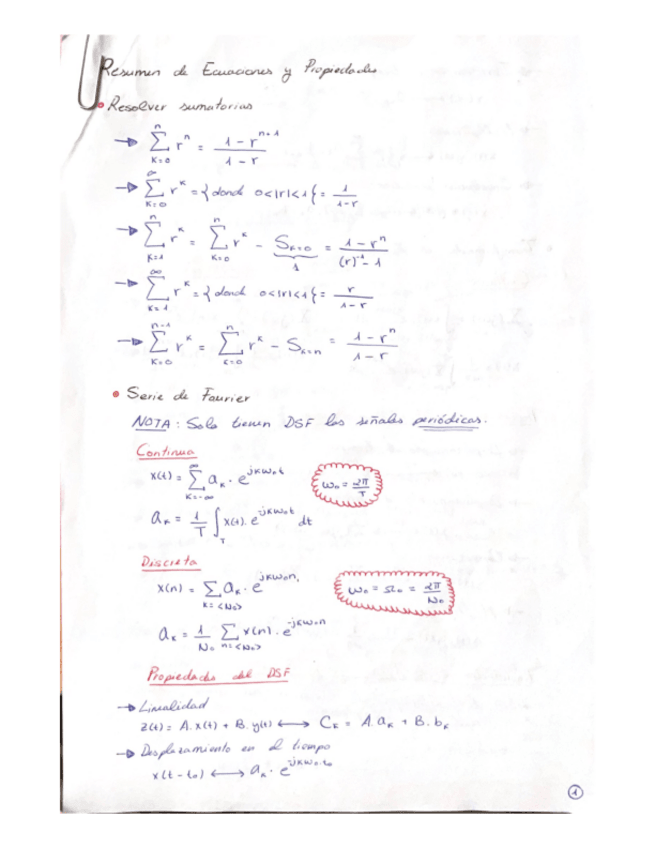 Resumen de Ecuaciones y Propiedades
• Resolver sumatorias
→ \sum_{K=0}^{n} r^n = \frac{1-r^{n+1}}{1-r}
→ \sum_{K=0}^{∞} r^K = { donde 0<|r|<1 } = \frac{1}{1-r}
→ \sum_{K=1}^{n} r^K = \sum_{K=0}^{n} r^K - \underbrace{S_{K=0}}_{1} = \frac{1-r^n}{(r)^{-1}-1}
→ \sum_{K=1}^{∞} r^K = { donde 0<|r|<1 } = \frac{r}{1-r}
→ \sum_{K=0}^{n-1} r^K = \sum_{K=0}^{n} r^K - S_{K=n} = \frac{1-r^n}{1-r}
• Serie de Fourier
NOTA: Solo tienen DSF las señales periódicas.
Continua
x(t) = \sum_{K=-∞}^{∞} a_K · e^{jKω_0t} ω_0 = \frac{2π}{T}
a_K = \frac{1}{T} \int_T x(t). e^{-jKω_0t} dt
Discreta
x(n) = \sum_{K=<N_0>} a_K · e^{jKω_0n} ω_0 = Ω_0 = \frac{2π}{N_0}
a_K = \frac{1}{N_0} \sum_{n=<N_0>} x(n). e^{-jKω_0n}
Propiedades del DSF
→ Linealidad
z(t) = A.x(t) + B.y(t) ⟷ C_K = A.a_K + B.b_K
→ Desplazamiento en el tiempo
x(t-t_0) ⟷ a_K · e^{-jKω_0.t_0}
1